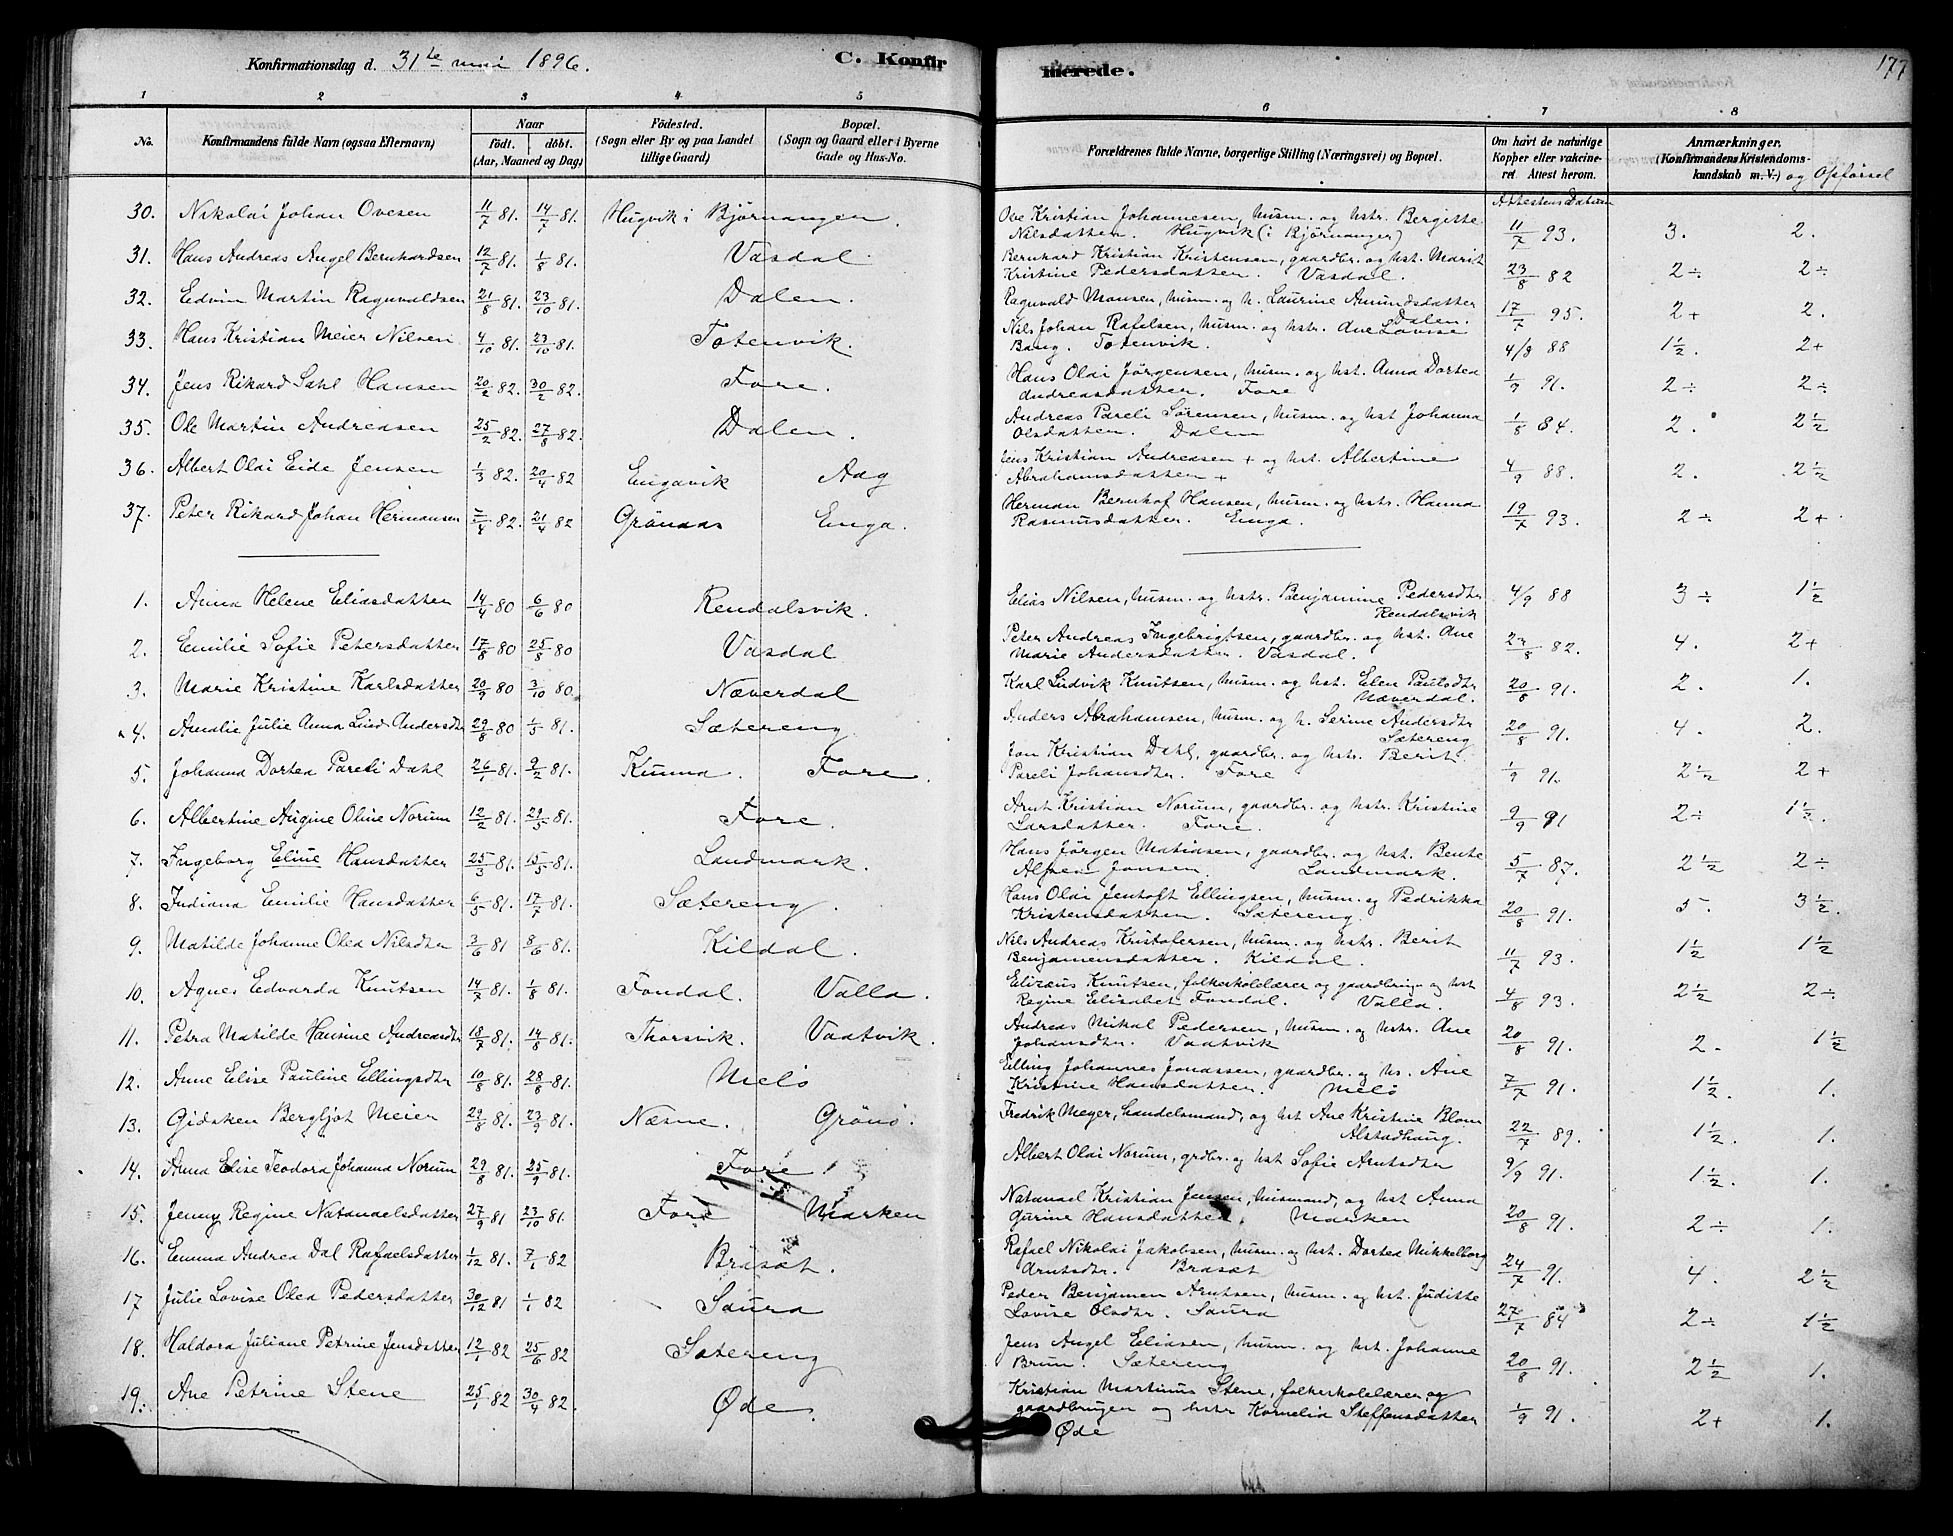 Konfirmationsdag d. 31te mai 1896.
C. Konfir
merede.
177
1 2 3 4 5 6 7 8
No.
Konfirmandens fulde Navn (ogsaa Efternavn)
Naar
födt. döbt.
(Aar, Maaned og Dag)
Födested.
(Sogn eller By og paa Landet
tillige Gaard)
Bopæl.
(Sogn og Gaard eller i Byerne
Gade og Hus-No.
Forældrenes fulde Navne, borgerlige Stilling (Næringsvei) og Bopæl.
Om havt de naturlige
Kopper eller vakcine-
ret Attest herom.
Anmærkninger.
(Konfirmandens Kristendoms-
kundskab m. V.) og Opførsel
Attestens Datum
30. Nikolai Johan Ovesen 11/7 81. 14/7 81. Hugvik i Bjørnangen. Ove Kristian Johannesen, husm. og hstr. Bergitte
Nilsdatter. Hugvik (i Bjørnanger) 11/7 93. 3. 2.
31. Hans Andreas Angel Bernhardsen 12/7 81. 1/8 81. Vasdal. Bernhard Kristian Kristensen, gaardbr. og hst. Marit
Kristine Pedersdatter. Vasdal. 23/8 82 2÷ 2÷
32. Edvin Martin Ragnvaldsen 21/8 81. 23/10 81. Dalen. Ragnvald Monsen, husm. og h. Laurine Amundsdatter
Dalen. 17/7 95. 2+ 2.
33. Hans Kristian Meier Nilsen 4/10 81. 23/10 81. Totenvik. Nils Johan Rafelsen, husm. og hstr. Ane Lovise
Bang. Totenvik. 4/8 88 1½. 2+
34. Jens Rikard Sahl Hansen 20/2 82. 30/2 82. Fore. Hans Olai Jørgensen, husm. og hst. Anna Dortea
Andreasdatter. Fore 1/9 91. 2÷ 2÷
35. Ole Martin Andreasen 25/2 82. 27/8 82. Dalen. Andreas Pareli Sørensen, husm. og hst Johanna
Olsdatter. Dalen 1/8 84. 2. 2½
36. Albert Olai Eide Jensen 1/3 82. 20/4 82 Engavik Aag Jens Kristian Andreasen + og hst. Albertine
Abrahamsdatter + 4/9 88. 2. 2½
37. Peter Rikard Johan Hermansen 2/4 82. 21/4 82 Grönaas Enga. Herman Bernhof Hansen, husm. og hstr. Hanna
Rasmusdatter. Enga. 19/7 93. 2÷ 2+
1. Anna Helene Eliasdatter 14/4 80 6/6 80 Rendalsvik. Elias Nilsen, husm. og hstr. Benjamine Pedersdtr
Rendalsvik 4/9 88 3÷ 1½
2. Emilie Sofie Petersdatter 17/8 80 25/8 80 Vasdal Peter Andreas Ingebrigtsen, gaardbr. og hst. Ane
Marie Andersdatter. Vasdal. 23/8 82. 4. 2+
3. Marie Kristine Karlsdatter 20/9 80 3/10 80. Næverdal Karl Ludvik Knutsen, husm. og hst. Elen Paulsdtr
Næverdal. 20/8 91. 2. 1.
4. Amalie Julie Anna Lind Andersdtr 29/8 80 1/5 81. Sætereng Anders Abrahamsen, husm. og h. Serine Andersdtr
Sætereng 20/8 91. 4. 2.
5. Johanna Dortea Pareli Dahl 26/1 81. 9/2 81. Kunna. Fore. Jon Kristian Dahl, gaardbr. og hstr. Berit
Pareli Johansdtr. Fore 1/9 91. 2½ 2+
6. Albertine Augine Oline Norum 12/2 81. 29/5 81. Fore. Arnt Kristian Norum, gaardbr. og hstr. Kristine
Larsdatter. Fore. 9/9 91 2÷ 1½.
7. Ingeborg Eline Hansdatter 25/3 81. 15/5 81. Landmark. Hans Jörgen Matiasen, gaardbr. og hst. Bente
Alfrea Jansen. Landmark. 5/7 87. 2½ 2÷
8. Indiana Emilie Hansdatter 6/5 81. 17/7 81. Sætereng. Hans Olai Jentoft Ellingsen, husm. og Pedrikka
Kristensdatter. Sætereng. 20/8 91. 5. 3½.
9. Matilde Johanne Olea Nilsdtr 3/6 81 8/6 81. Kildal. Nils Andreas Kristofersen, husm. og hstr. Berit
Benjamensdatter. Kildal. 11/7 93. 1½ 1½
10. Agnes Edvarda Knutsen 14/7 81. 1/8 81. Fondal. Valla. Elizæus Knutsen, folkeskolelærer og gaardbruger og hst
Regine Elisabet Fondal. Valla. 4/8 93. 2½ 2÷
11. Petra Matilde Hansine Andreasdtr 18/7 81. 14/8 81. Thorsvik. Vaatvik. Andreas Mikal Pedersen, husm. og hstr. Ane
Johansdtr. Vaatvik 20/8 91. 2. 1½
12. Anne Elise Pauline Ellingsdtr 10/8 81. 28/8 81. Melö Elling Johannes Jonassen, gaardbr. og hs. Ane
Kristine Hansdatter. Melö 7/7 91. 1½. 1.
13. Gidsken Bergljot Meier 29/8 81. 23/9 81. Næsne. Grönö. Fredrik Meyer, handelsmand, og hst Ane Kristine Blom
Alstadhaug. 22/7 89. 1½. 1.
14. Anna Elise Teodora Johanna Norum 29/8 81. 25/9 81. Fore Albert Olai Norum, grdbr. og hst Sofie Arntsdtr
9/9 91. 1½. 1.
15. Jenny Regine Natanaelsdatter 27/9 81 23/10 81. Fore Marken Natanael Kristian Jensen, husmand, og hst Anna
Gurine Hansdatter. Marken 20/8 91. 2÷ 1.
16. Emma Andrea Dal Rafaelsdatter 1/12 81. 7/1 82 Bråsæt. Rafael Nikolai Jakobsen, husm. og hst. Dortea Mikkelborg
Arntsdtr. Bråsæt 24/7 91. 4. 2½
17 Julie Lovise Olea Pedersdatter 30/12 81 1/1 82 Saura Peder Benjamen Arntsen, husm. og hst. Juditte
Lovise Olsdtr. Saura 27/7 84 2÷ 1½
18. Haldora Juliane Petrine Jensdatter 12/1 82 25/6 82 Sætereng Jens Angel Eliasen, husm. og hst. Johanne
Brun. Sætereng 20/8 91. 2½ 1.
19. Ane Petrine Stene 25/1 82 30/4 82. Øde. Kristian Martinus Stene, folkeskolelærer og
gaardbruger og hstr Kornelia Steffensdatter
Øde 1/9 91. 2+ 1.